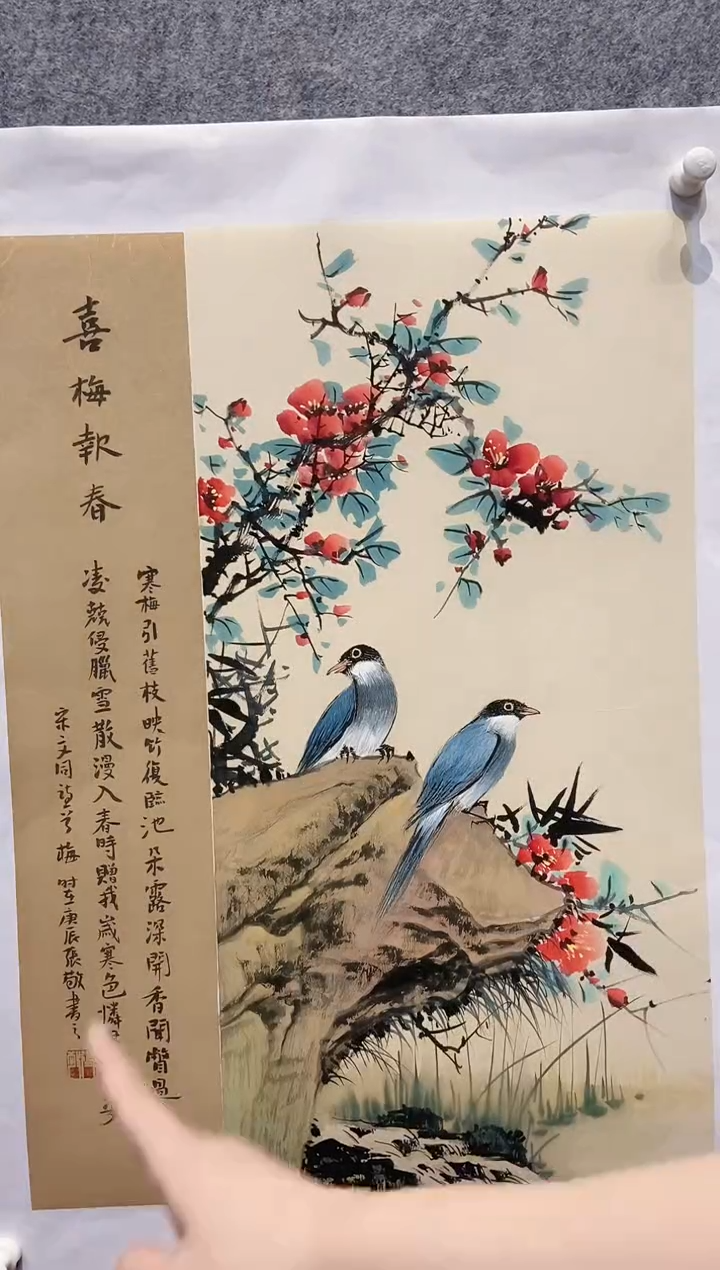 喜梅報春
寒梅引舊枝映竹復臨池朵露深開香聞瞥過
凌兢侵臘雪散漫入春時贈我歲寒色憐
宋文同詩詠梅時在庚辰張敬書之